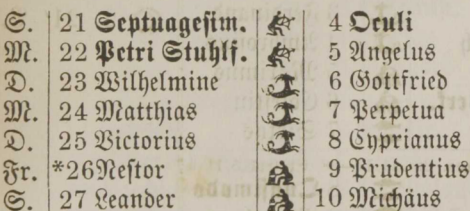 S. 21 Septuagesim. 4 Oculi
M. 22 Petri Stuhlf. 5 Angelus
D. 23 Wilhelmine 6 Gottfried
M. 24 Matthias 7 Perpetua
D. 25 Victorius 8 Cyprianus
Fr. *26 Nestor 9 Prudentius
S. 27 Leander 10 Michäus